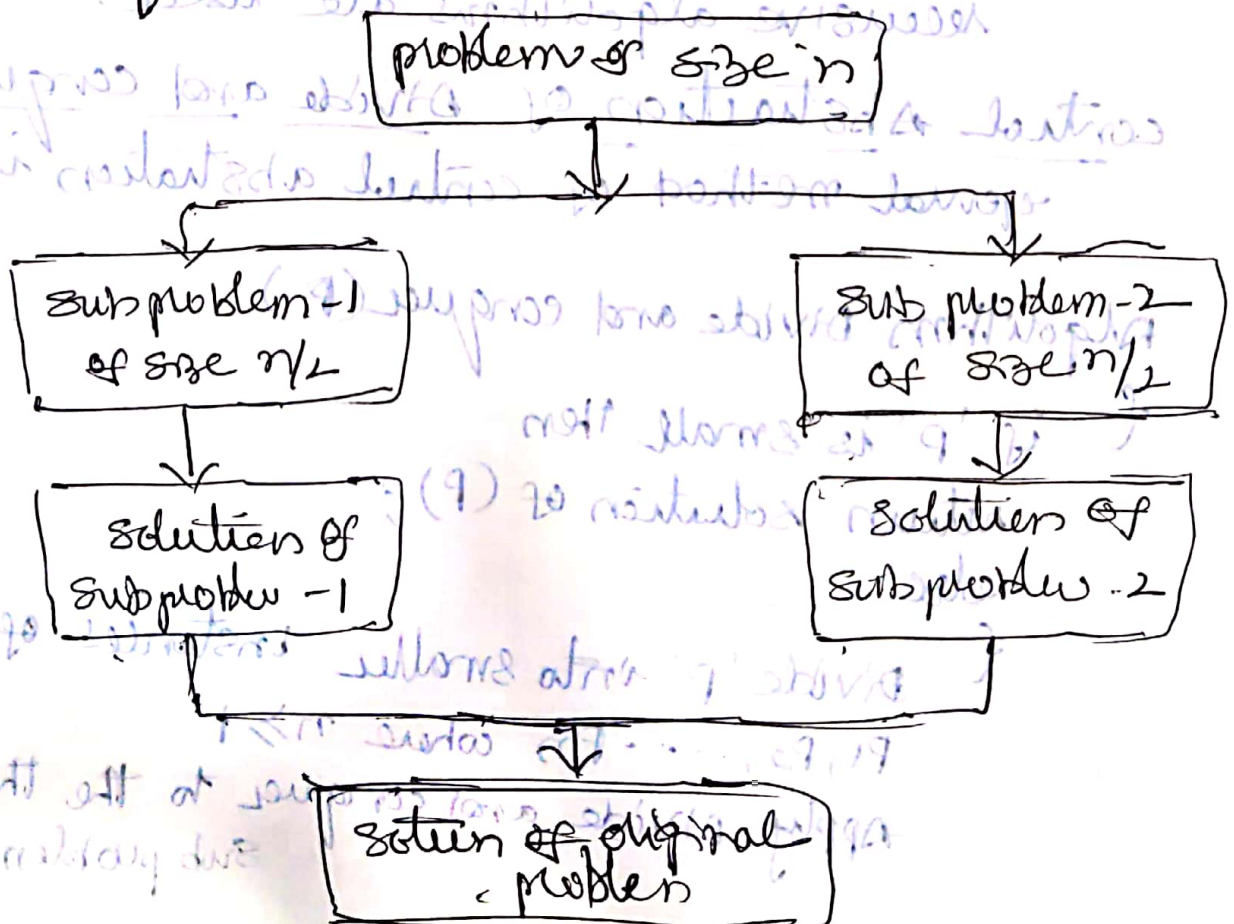 problem of size n
sub problem-1
of size n/2
sub problem-2
of size n/2
solution of
subproblem -1
solution of
subproblem -2
solution of original
problem